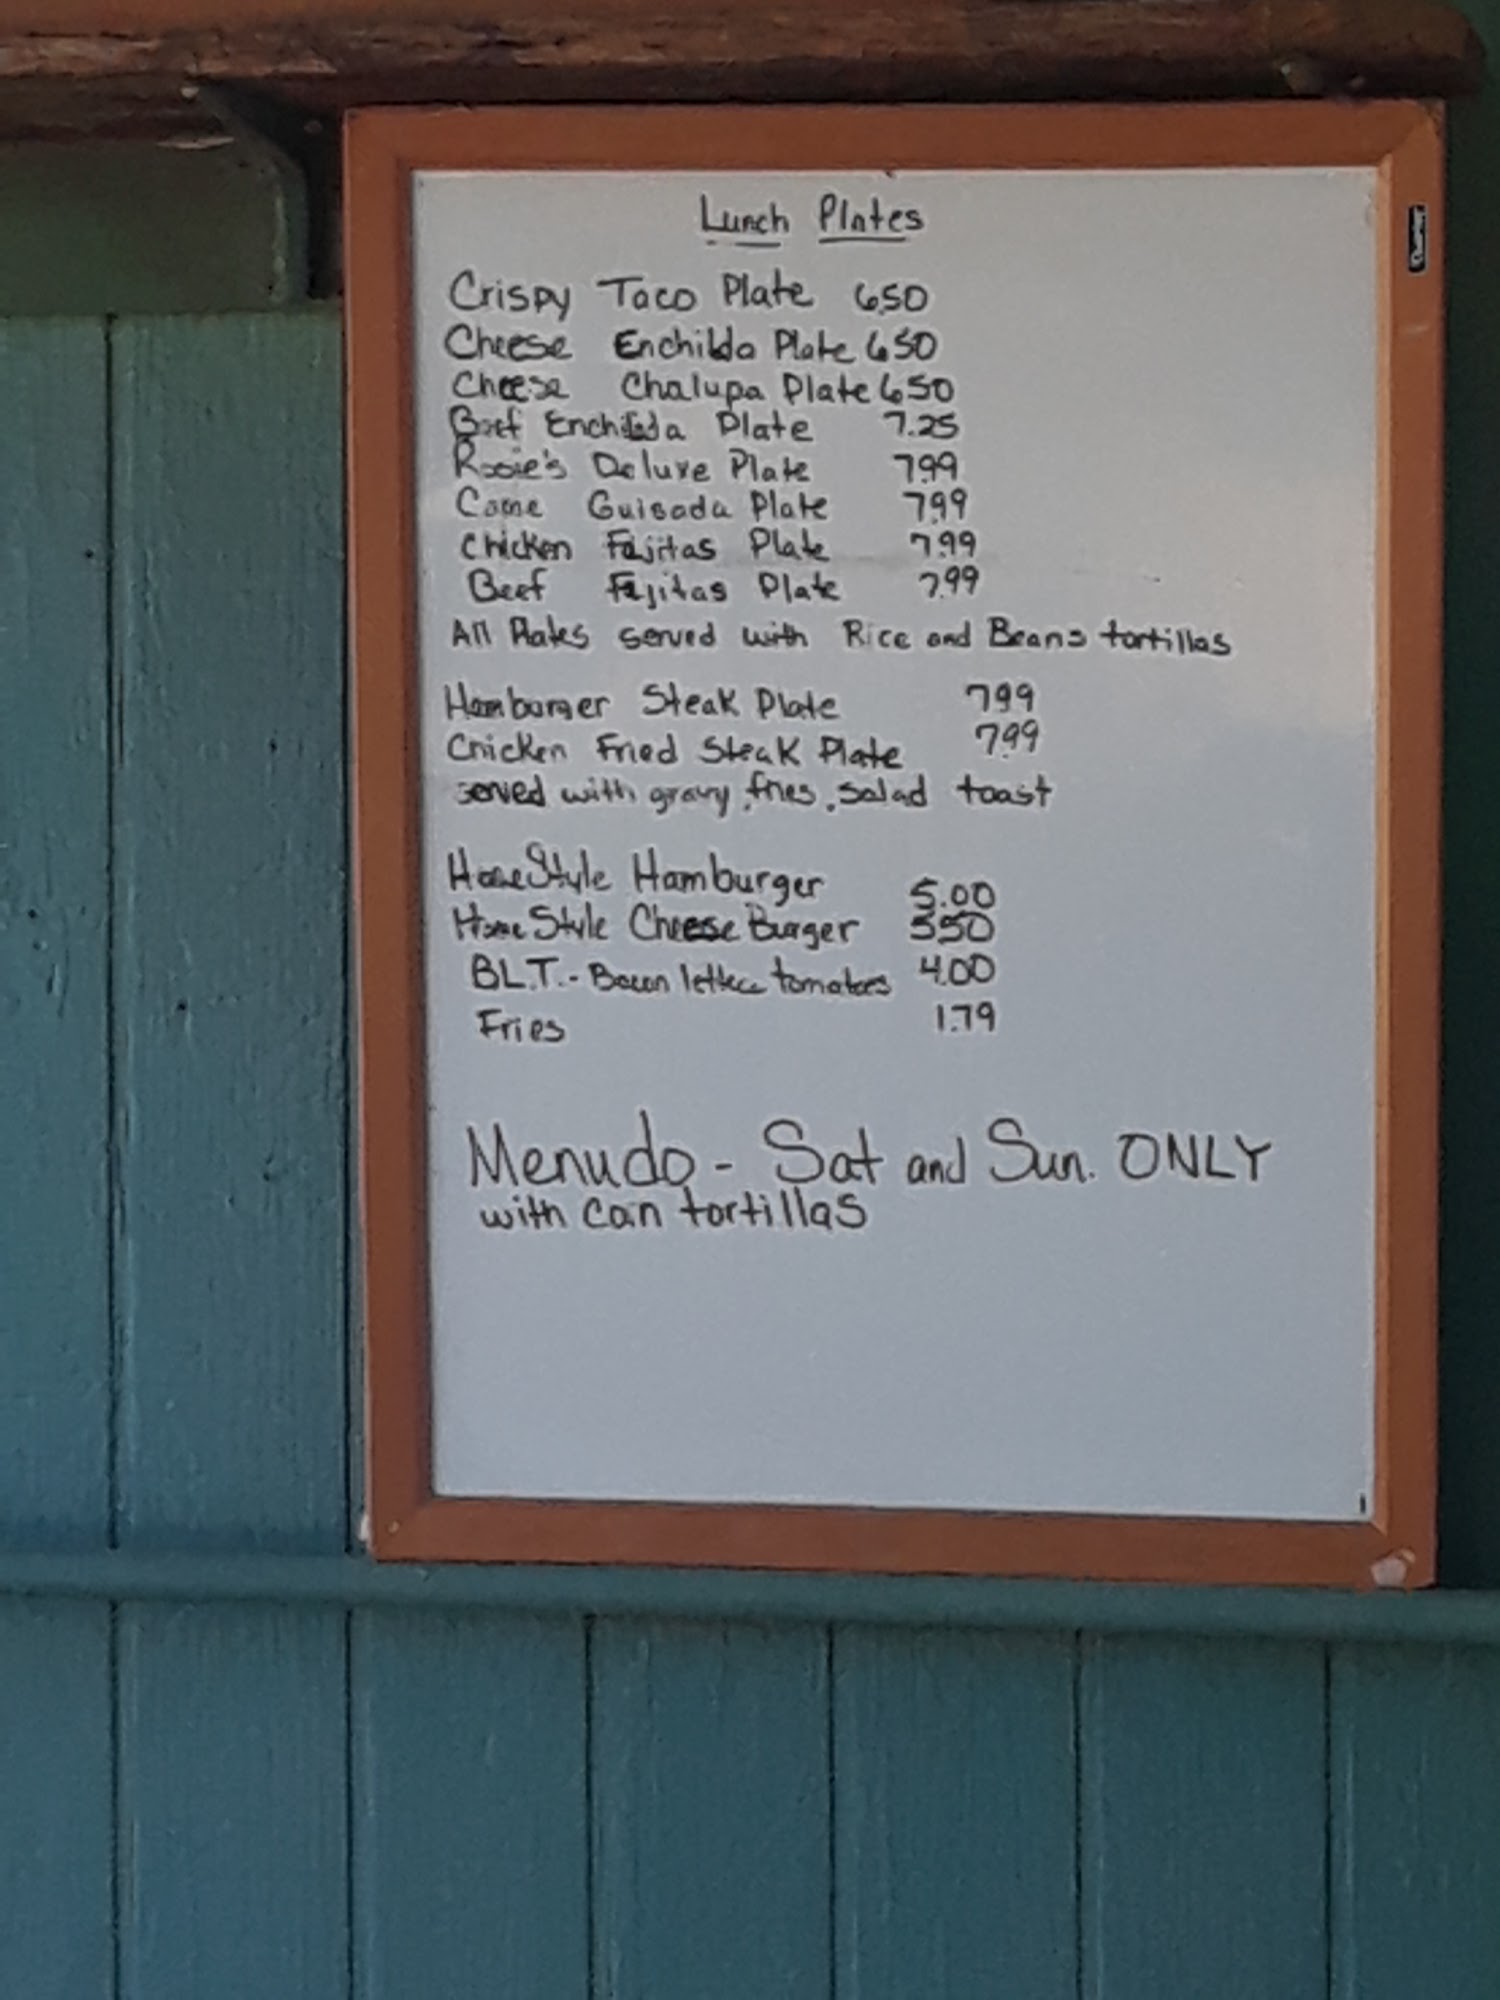 Lunch Plates
Crispy Taco Plate 6.50
Cheese Enchilda Plate 6.50
Cheese Chalupa Plate 6.50
Beef Enchilada Plate 7.25
Rosie's Deluxe Plate 7.99
Carne Guisada Plate 7.99
Chicken Fajitas Plate 7.99
Beef Fajitas Plate 7.99
All Plates served with Rice and Beans tortillas
Hamburger Steak Plate 7.99
Chicken Fried Steak Plate 7.99
served with gravy, fries, salad toast
HomeStyle Hamburger 5.00
HomeStyle Cheese Burger 5.50
BL.T. - Bacon lettuce tomatoes 4.00
Fries 1.79
Menudo - Sat and Sun. ONLY
with corn tortillas
Quartet